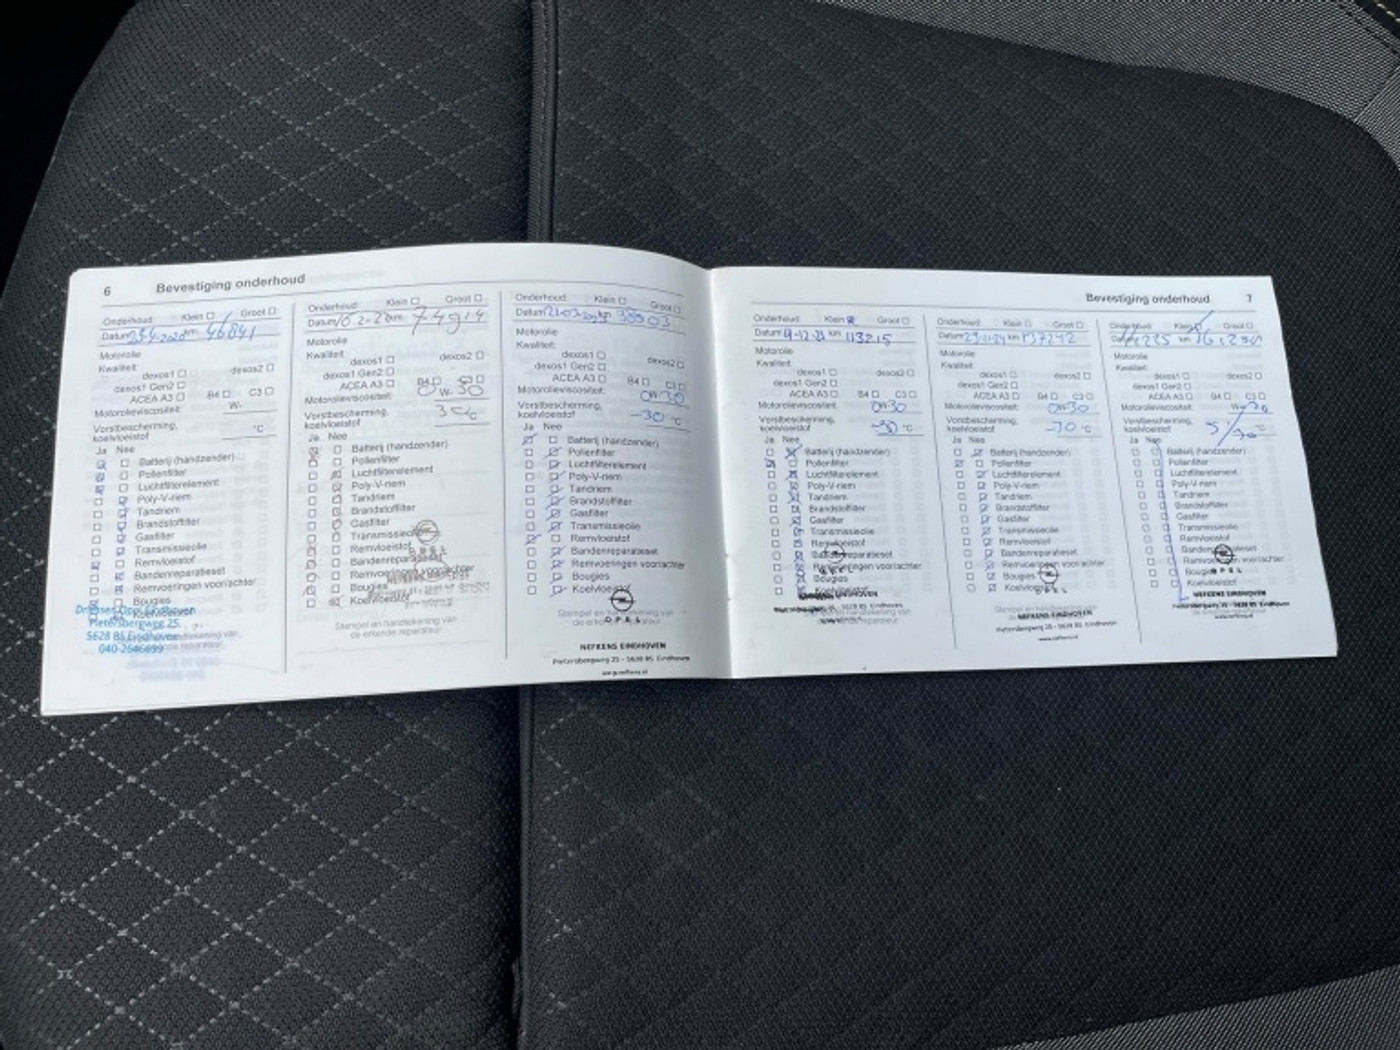 6 Bevestiging onderhoud
Onderhoud: Klein Groot
Datum km 46841
Motorolie
Kwaliteit:
dexos1 dexos2
dexos1 Gen2
ACEA A3 B4 C3
Motorolieviscositeit: W-
Vorstbescherming,
koelvloeistof °C
Ja Nee
Batterij (handzender)
Pollenfilter
Luchtfilterelement
Poly-V-riem
Tandriem
Brandstoffilter
Gasfilter
Transmissieolie
Remvloeistof
Bandenreparatieset
Remvoeringen voor/achter
Bougies
Koelvloeistof
Driessen Opel Eindhoven
Pietersbergweg 25
5628 BS Eindhoven
040-2646699
Onderhoud: Klein Groot
Datum km 74914
Motorolie
Kwaliteit:
dexos1 dexos2
dexos1 Gen2
ACEA A3 B4 C3
Motorolieviscositeit: 0W-30
Vorstbescherming,
koelvloeistof
Ja Nee
Batterij (handzender)
Pollenfilter
Luchtfilterelement
Poly-V-riem
Tandriem
Brandstoffilter
Gasfilter
Transmissieolie
Remvloeistof
Bandenreparatieset
Remvoeringen voor/achter
Bougies
Koelvloeistof
OPEL
Stempel en handtekening van
de erkende reparateur
Onderhoud: Klein Groot
Datum km
Motorolie
Kwaliteit:
dexos1 dexos2
dexos1 Gen2
ACEA A3 B4 C3
Motorolieviscositeit: 0W-30
Vorstbescherming,
koelvloeistof -30 °C
Ja Nee
Batterij (handzender)
Pollenfilter
Luchtfilterelement
Poly-V-riem
Tandriem
Brandstoffilter
Gasfilter
Transmissieolie
Remvloeistof
Bandenreparatieset
Remvoeringen voor/achter
Bougies
Koelvloeistof
Stempel en handtekening van
de erkende reparateur
OPEL
NEFKENS EINDHOVEN
Pietersbergweg 25 - 5628 BS Eindhoven
www.nefkens.nl
Bevestiging onderhoud 7
Onderhoud: Klein Groot
Datum km 113215
Motorolie
Kwaliteit:
dexos1 dexos2
dexos1 Gen2
ACEA A3 B4 C3
Motorolieviscositeit: 0W-30
Vorstbescherming,
koelvloeistof -30 °C
Ja Nee
Batterij (handzender)
Pollenfilter
Luchtfilterelement
Poly-V-riem
Tandriem
Brandstoffilter
Gasfilter
Transmissieolie
Remvloeistof
Bandenreparatieset
Remvoeringen voor/achter
Bougies
Koelvloeistof
OPEL
NEFKENS EINDHOVEN
5628 BS Eindhoven
Onderhoud: Klein Groot
Datum km 137242
Motorolie
Kwaliteit:
dexos1 dexos2
dexos1 Gen2
ACEA A3 B4 C3
Motorolieviscositeit: 0W-30
Vorstbescherming,
koelvloeistof °C
Ja Nee
Batterij (handzender)
Pollenfilter
Luchtfilterelement
Poly-V-riem
Tandriem
Brandstoffilter
Gasfilter
Transmissieolie
Remvloeistof
Bandenreparatieset
Remvoeringen voor/achter
Bougies
Koelvloeistof
NEFKENS EINDHOVEN
Pietersbergweg 25 - 5628 BS Eindhoven
www.nefkens.nl
Onderhoud: Klein Groot
Datum km
Motorolie
Kwaliteit:
dexos1 dexos2
dexos1 Gen2
ACEA A3 B4 C3
Motorolieviscositeit:
Vorstbescherming,
koelvloeistof °C
Ja Nee
Batterij (handzender)
Pollenfilter
Luchtfilterelement
Poly-V-riem
Tandriem
Brandstoffilter
Gasfilter
Transmissieolie
Remvloeistof
Bandenreparatieset
Remvoeringen voor/achter
Bougies
Koelvloeistof
OPEL
NEFKENS EINDHOVEN
Pietersbergweg 25 - 5628 BS Eindhoven
www.nefkens.nl